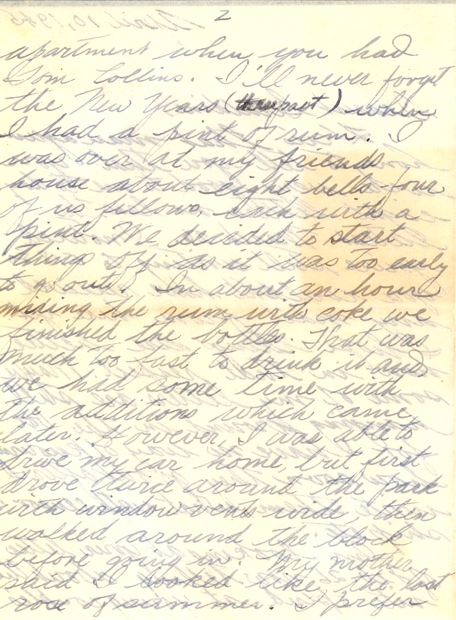 2
apartment when you had
Tom Collins. I'll never forget
the New Years (  ) when
I had a pint of rum. I
was over at my friends
house about eight bells four
of us fellows, each with a
pint. We decided to start
things off as it was too early
to go out. In about an hour
mixing the rum with coke we
finished the bottles. That was
much too fast to drink it and
we had some time with
the additions which came
later. However, I was able to
drive my car home, but first
drove twice around the park
with window vent wide then
walked around the block
before going in. My mother
said I looked like the last
rose of summer. I prefer